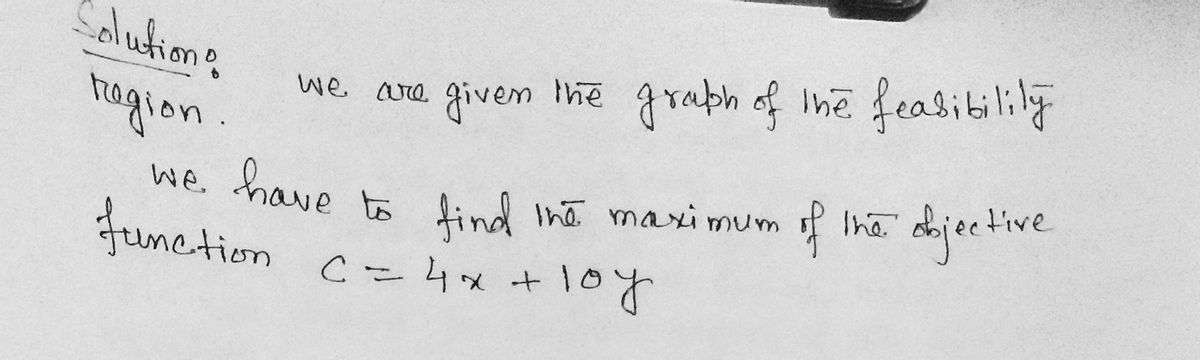 Solution:
we are given the graph of the feasibility
region.
we have to find the maximum of the objective
function C = 4x + 10y